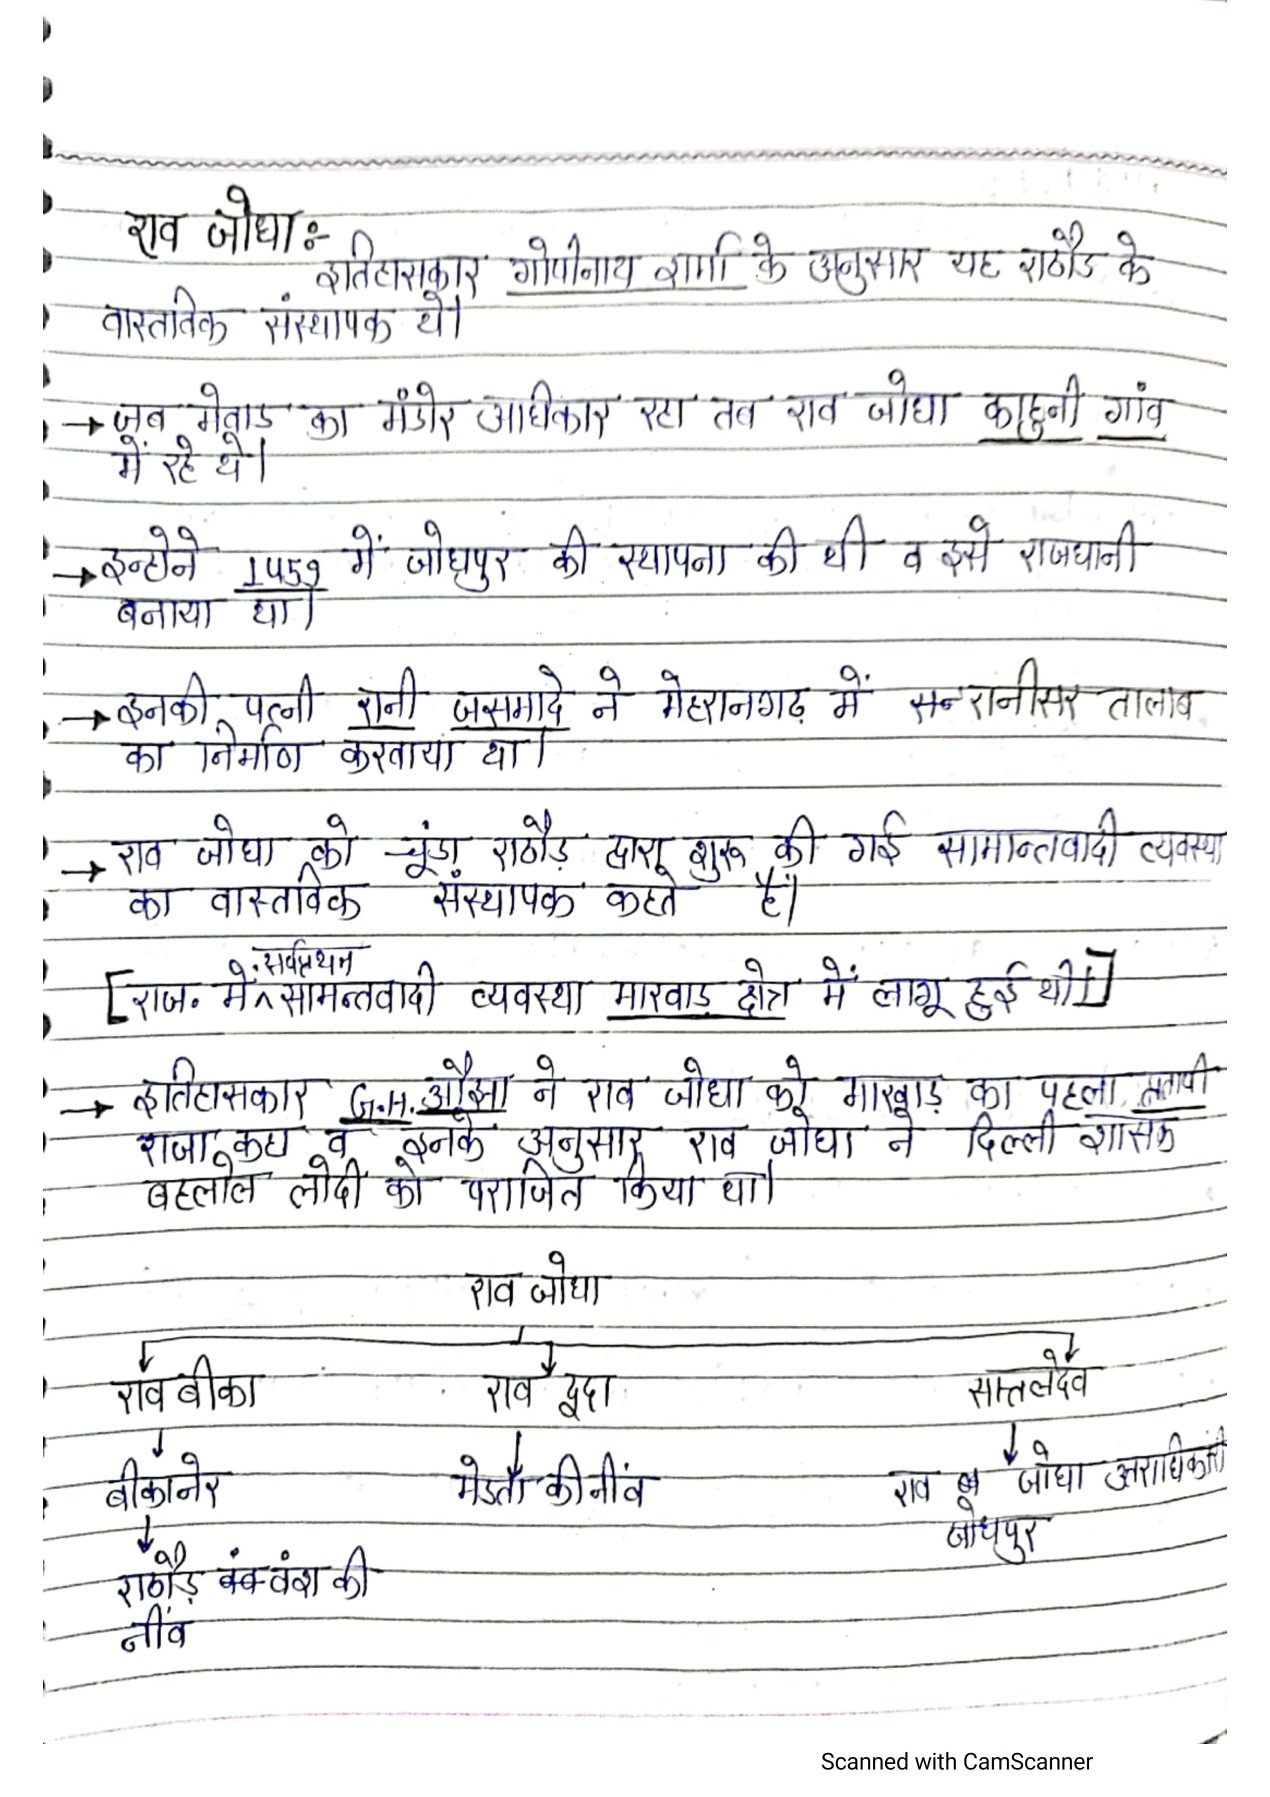 राव जोधा:-
इतिहासकार गोपीनाथ शर्मा के अनुसार यह राठौड के
वास्तविक संस्थापक थे।
→ जब मेवाड का मंडोर अधिकार रहा तब राव जोधा काहुनी गांव
में रहे थे।
→ इन्होने 1459 में जोधपुर की स्थापना की थी व इसे राजधानी
बनाया था।
→ इनकी पत्नी रानी जसमादे ने मेहरानगढ़ में रानीसर तालाब
का निर्माण करवाया था।
→ राव जोधा को चूंडा राठौड़ द्वारा शुरू की गई सामान्तवादी व्यवस्था
का वास्तविक संस्थापक कहते हैं।
सर्वप्रथम
[राज. में ^ सामन्तवादी व्यवस्था मारवाड़ क्षेत्र में लागू हुई थी।]
→ इतिहासकार G.H. औझा ने राव जोधा को मारवाड़ का पहला प्रतापी
राजा कहा व इनके अनुसार राव जोधा ने दिल्ली शासक
बहलोल लोदी को पराजित किया था।
राव जोधा
राव बीका राव दूदा सातलदेव
बीकानेर मेडता की नींव राव जोधा उत्तराधिकारी
जोधपुर
राठौड़ वंश की
नींव
Scanned with CamScanner